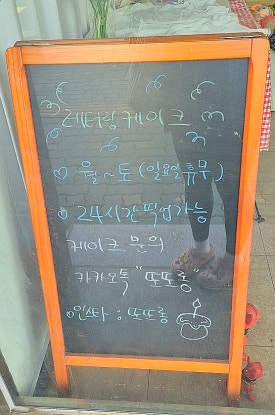 레터링케이크
월~토 (일요일휴무)
24시간 픽업가능
케이크 문의
카카오톡 "또또롱"
인스타 : 또또롱